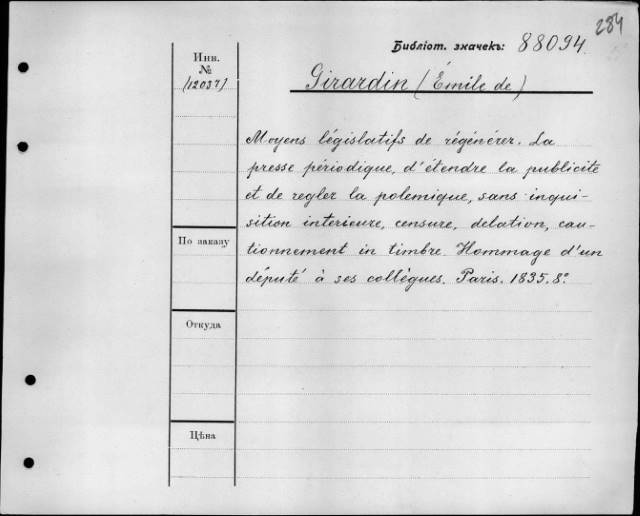 284
Библіот. значекъ: 88094.
Инв.
№
(12037)
Girardin (Émile de)
Moyens législatifs de régénérer. La
presse périodique, d'étendre la publicité
et de regler la polemique, sans inqui-
sition interieure, censure, delation, cau-
tionnement in timbre. Hommage d'un
député à ses collègues. Paris. 1835. 8º
По заказу
Откуда
Цѣна